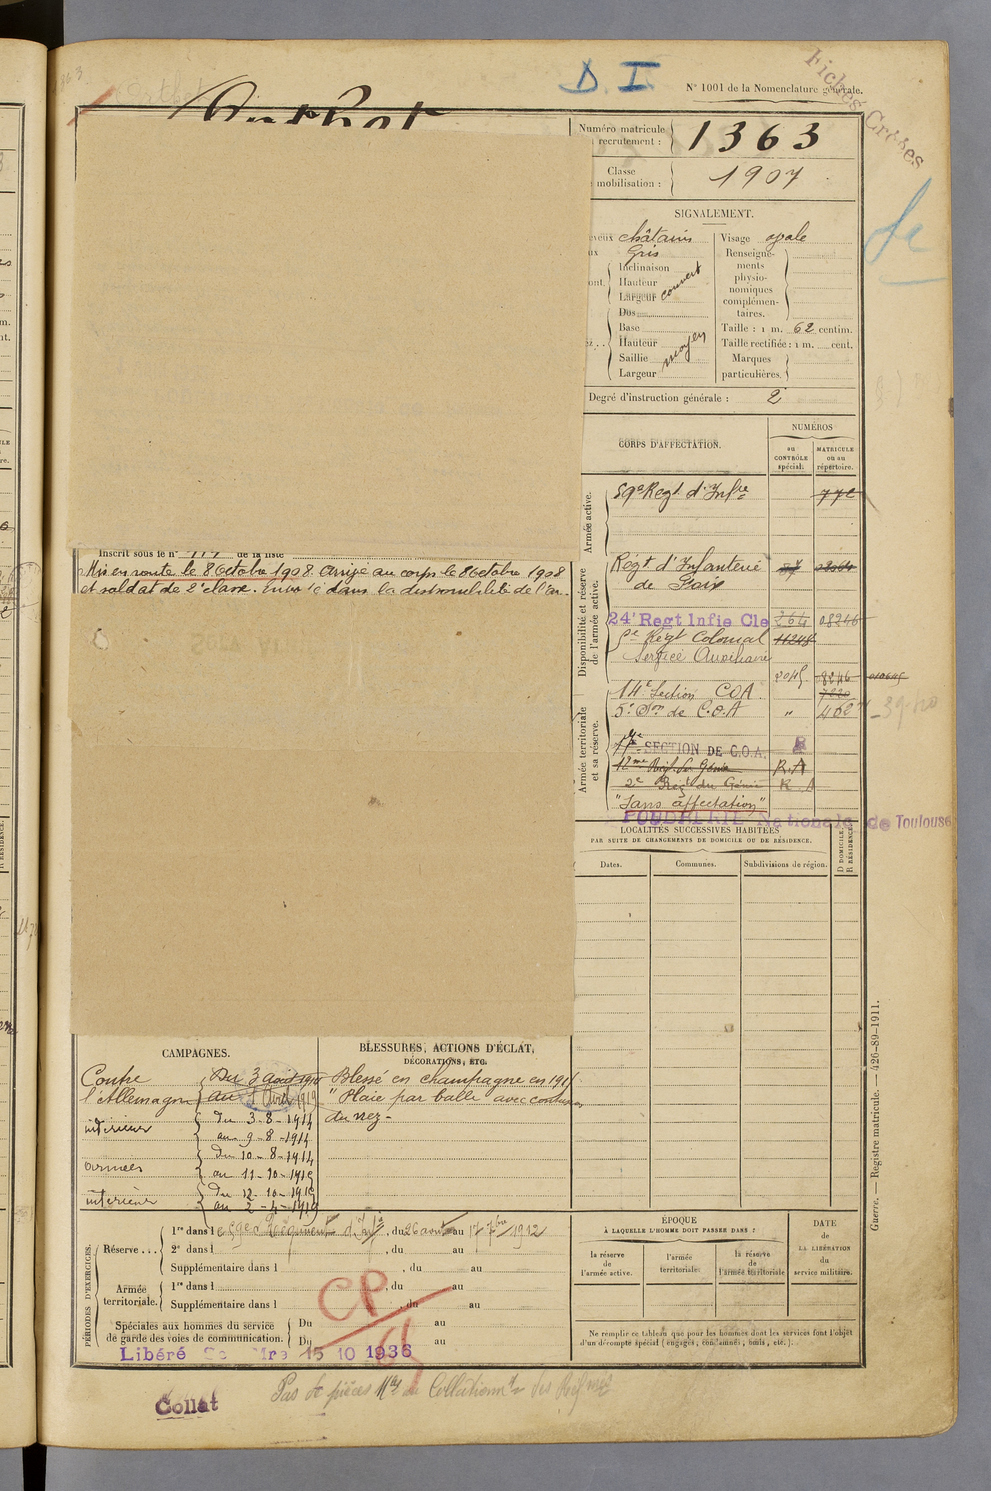 D. I
N° 1001 de la Nomenclature générale.
Fiches Créées
Numéro matricule
recrutement :
1363
Classe
mobilisation :
1907
SIGNALEMENT.
châtains
Gris
Inclinaison
Hauteur
Largeur
couvert
Dos
Base
Hauteur
Saillie
Largeur
moyen
Visage ovale
Renseigne-
ments
physio-
nomiques
complémen-
taires.
Taille : 1 m. 62 centim.
Taille rectifiée : 1 m. cent.
Marques
particulières.
Degré d'instruction générale : 2
CORPS D'AFFECTATION.
NUMÉROS
au
CONTRÔLE
spécial.
MATRICULE
ou au
répertoire.
Armée active.
59e Regt d'Infie
772
Disponibilité et réserve
de l'armée active.
Régt d'Infanterie
de Foix
24e Regt Infie Cle
264
08246
Régt Colonial
11248
Service Auxiliaire
Armée territoriale
et sa réserve.
14e Section COA
5e Son de C.O.A
"
SECTION DE C.O.A.
R.A
2e Regt du Génie
R.A
"Sans affectation"
POUDRERIE Nationale de Toulouse
Inscrit sous le n° de la liste
Mis en route le 8 Octobre 1908. Arrivé au corps le 8 Octobre 1908
et soldat de 2e classe. dans la disponibilité de l'ar.
LOCALITÉS SUCCESSIVES HABITÉES
PAR SUITE DE CHANGEMENTS DE DOMICILE OU DE RÉSIDENCE.
Dates.
Communes.
Subdivisions de région.
D DOMICILE
R RÉSIDENCE.
CAMPAGNES.
Contre
l'Allemagne
Du 3 août 1914
au 1 Avril 1919
intérieur
du 3-8-1914
au 9-8-1914
armées
du 10-8-1914
au 11-10-1915
intérieur
du 12-10-1915
au 2-4-1919
BLESSURES, ACTIONS D'ÉCLAT,
DÉCORATIONS, ETC.
Blessé en champagne en 1915
"Plaie par balle avec contusion
du nez -
PÉRIODES D'EXERCICES.
Réserve ...
1re dans le 59e Régiment d'Infie, du 26 août au 17 7bre 1912
2e dans l , du au
Supplémentaire dans l , du au
Armée
territoriale.
1re dans l , du au
Supplémentaire dans l , du au
Spéciales aux hommes du service
de garde des voies de communication.
Du au
Du au
CP
Libéré 15 10 1936
ÉPOQUE
À LAQUELLE L'HOMME DOIT PASSER DANS :
la réserve
de
l'armée active.
l'armée
territoriale.
la réserve
de
l'armée territoriale
DATE
de
LA LIBÉRATION
du
service militaire.
Ne remplir ce tableau que pour les hommes dont les services font l'objet
d'un décompte spécial (engagés, condamnés, omis, etc.).
Guerre. — Registre matricule. — 426-89-1911.
Collat
Pas de pièces